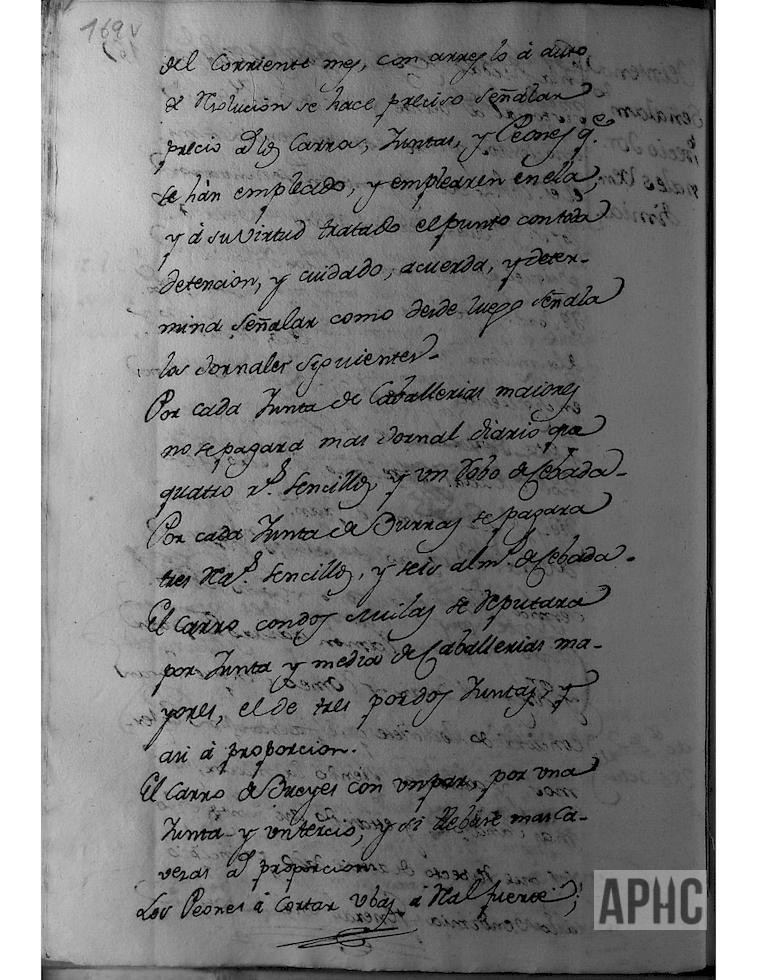 169v
del Corriente mes, con arreglo á auto
de Resolucion se hace preciso Señalar
precio a los Carros, Juntas, y Peones q.e
se hán empleado, y emplearen en ela,
y á su virtud tratado el punto con toda
detencion, y cuidado, acuerda, y deter-
mina Señalar como desde luego señala
los Jornales siguientes-
Por cada Junta de Caballerias maiores
no se pagara mas Jornal diario que
quatro r.s Sencillos y un Robo de Cebada-
Por cada Junta de Burras se pagara
tres Rea.s Sencillos, y seis alm.s de Cebada-
El Carro con dos Mulas se Reputara
por Junta y media de Caballerias ma-
yores, el de tres por dos Juntas, y
asi á proporcion.
El Carro de Bueyes con un par, por una
Junta y un tercio, y si llebare mas Ca-
vezas a proporcion
Los Peones á Cortar Ubas á Real fuerte;
APHC